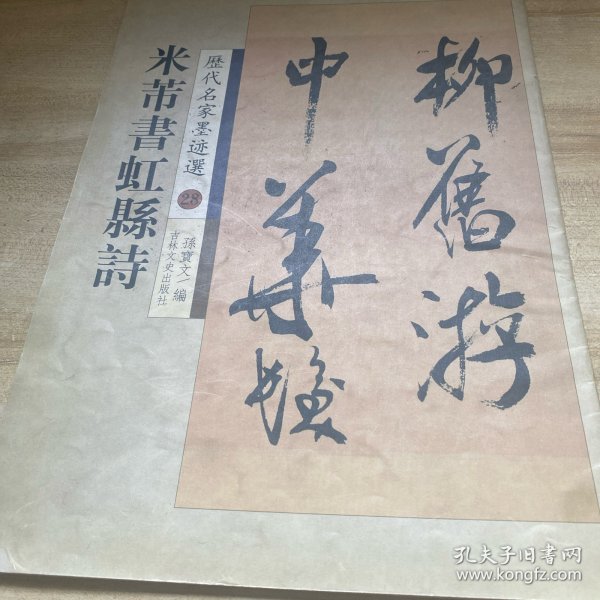 米芾書虹縣詩
歷代名家墨迹選
28
孫寶文 編
吉林文史出版社
柳舊游
中華髮
孔夫子旧书网
www.kongfz.com